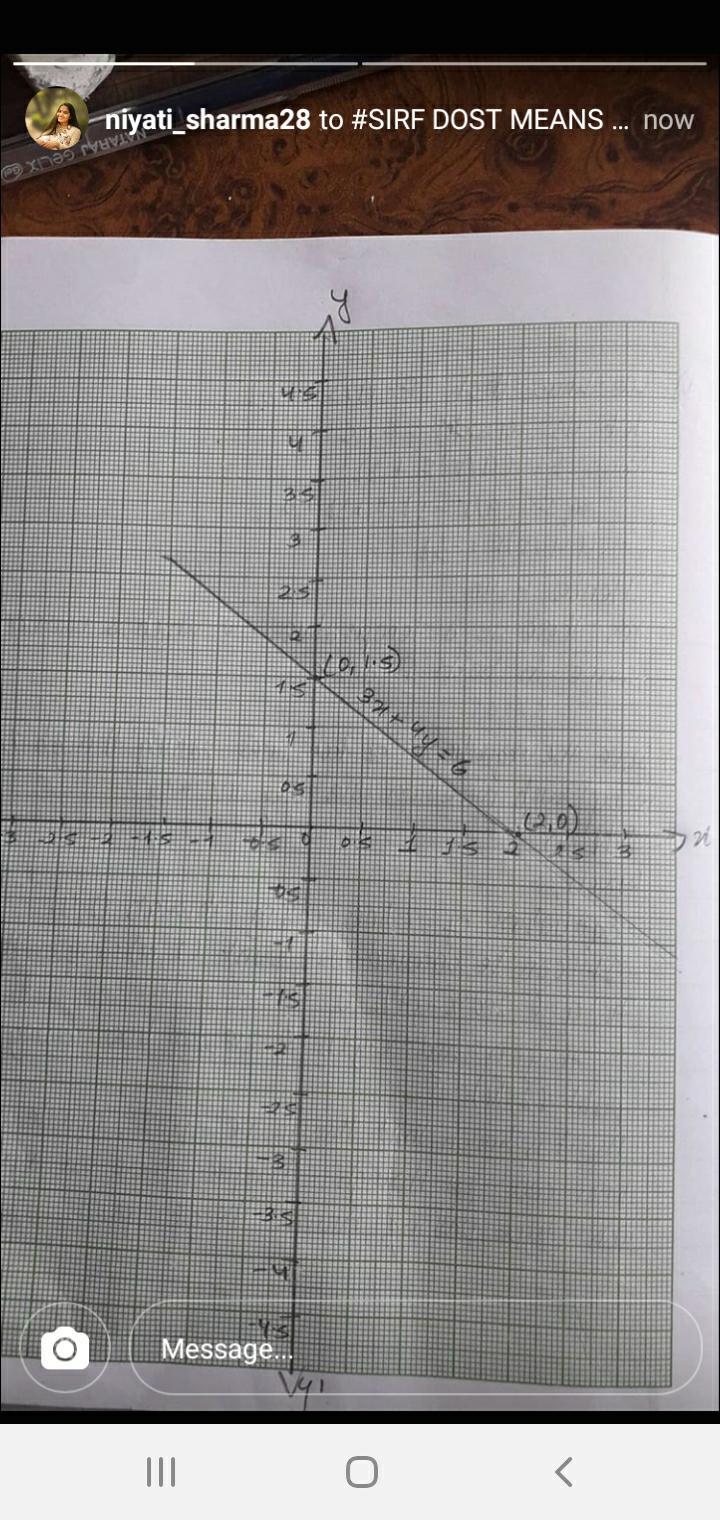 niyati_sharma28 to #SIRF DOST MEANS ... now
NATARAJ GELIX
y
4.5
4
3.5
3
2.5
2
(0, 1.5)
1.5
3x + 4y = 6
1
0.5
(2,0)
-3 -2.5 -2 -1.5 -1 -0.5 0 0.5 1 1.5 2 2.5 3 x
-0.5
-1
-1.5
-2
-2.5
-3
-3.5
-4
-4.5
Message...
y1